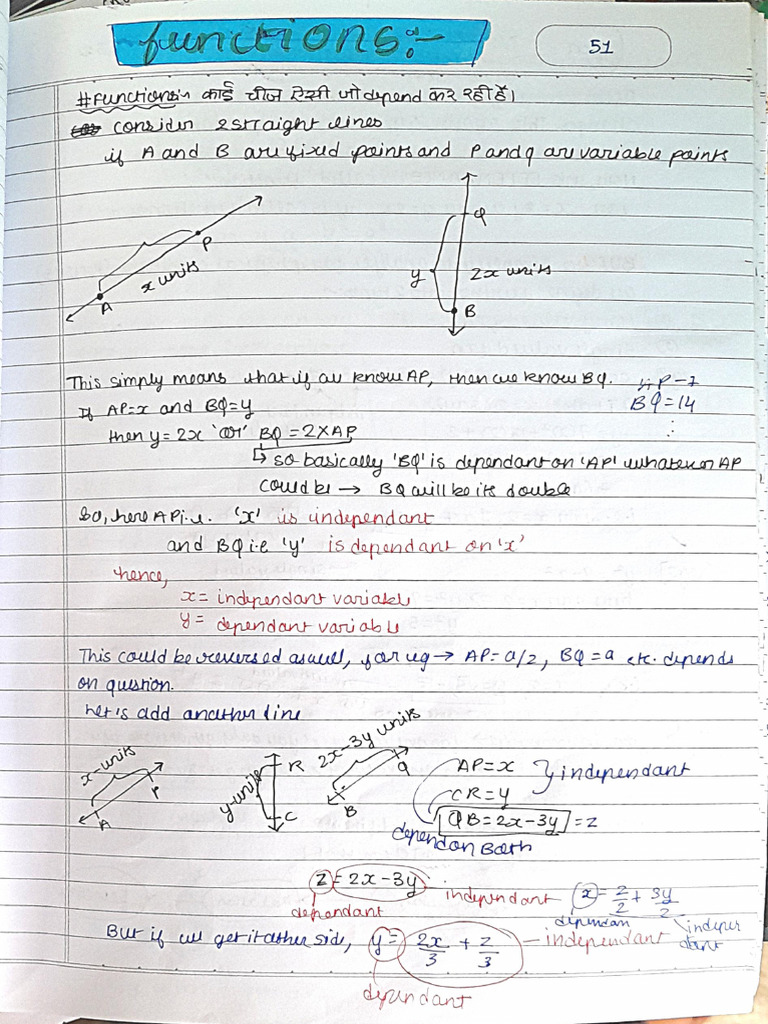 functions:-
51
#Functions:- कोई चीज ऐसी जो depend कर रही हैं।
consider 2 straight lines
if A and B are fixed points and P and q are variable points
P
x units
A
Q
y
2x units
B
This simply means that if we know AP, then we know BQ.
AP-7
If AP=x and BQ=y
BQ=14
then y=2x 'or' BQ=2XAP
↳ so basically 'BQ' is dependant on 'AP' whatever AP
could be → BQ will be its double
So, here AP i.e. 'x' is independant
and BQ i.e 'y' is dependant on 'x'
hence,
x= independant variable
y= dependant variable
This could be reversed as well, for eg → AP=a/2, BQ=a etc. depends
on question.
Let's add another line
x-units
P
A
y-units
R
C
2x-3y units
Q
B
AP=x
CR=y
} independant
QB=2x-3y =z
depend on Both
z=2x-3y - independant
dependant
x=z/2+3y/2
dependan
indepen
dant
But if we get it other side, y=2x/3+z/3 - independant
dependant